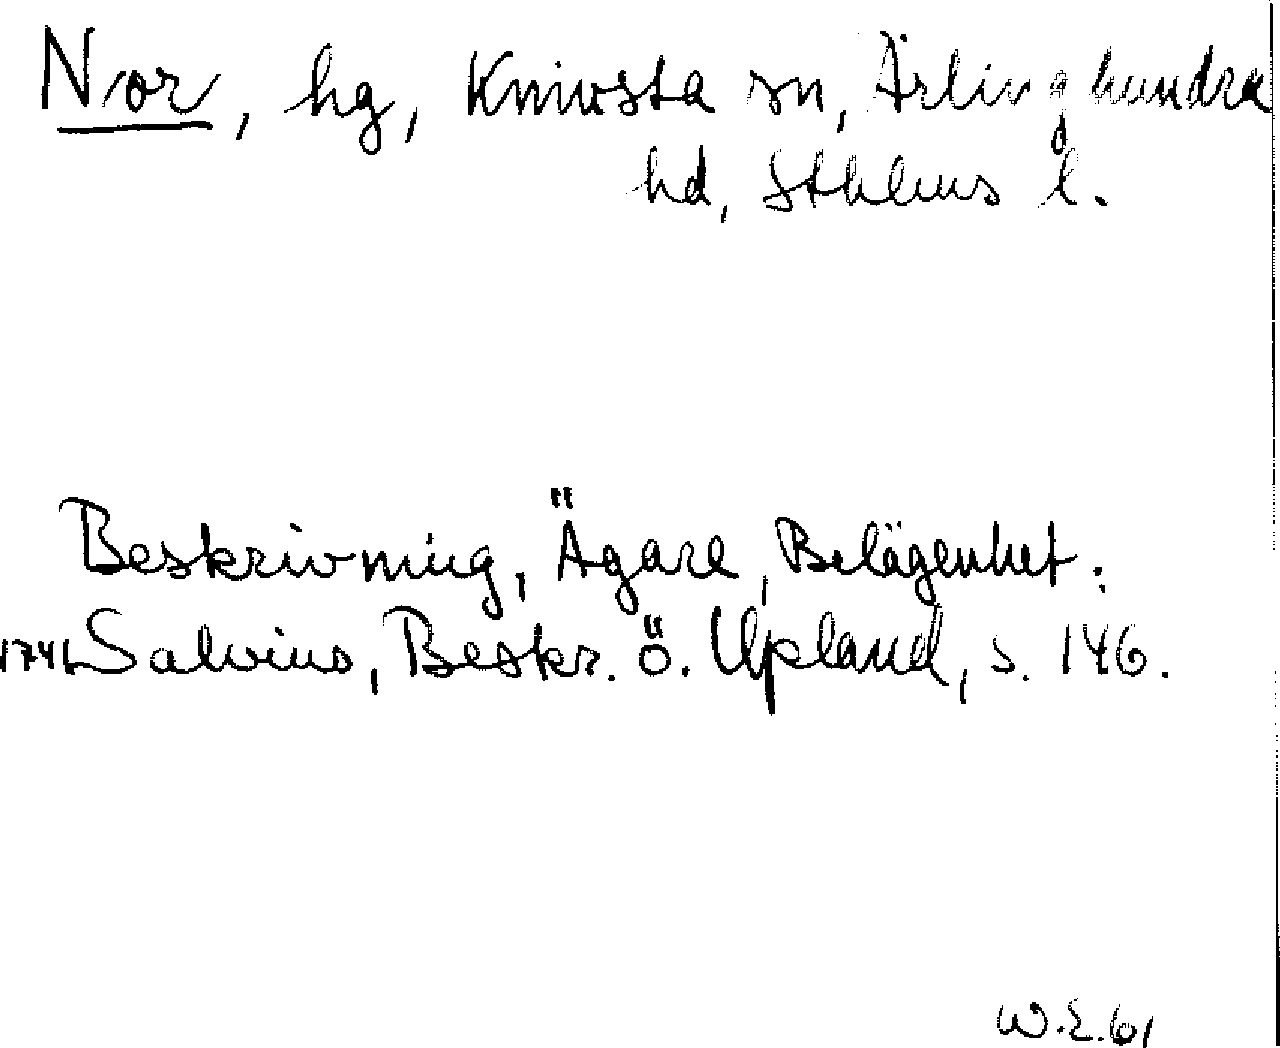 Nor, hg, Knivsta sn, Ärlinghundra
hd, Sthlms l.
Beskrivning, Ägare, Belägenhet:
1741 Salvius, Beskr. ö. Upland, s. 146.
W.E.61